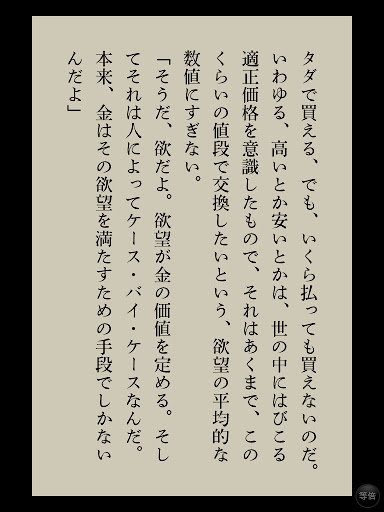 タダで買える、でも、いくら払っても買えないのだ。
いわゆる、高いとか安いとかは、世の中にはびこる
適正価格を意識したもので、それはあくまで、この
くらいの値段で交換したいという、欲望の平均的な
数値にすぎない。
「そうだ、欲だよ。欲望が金の価値を定める。そし
てそれは人によってケース・バイ・ケースなんだ。
本来、金はその欲望を満たすための手段でしかない
んだよ」
等倍